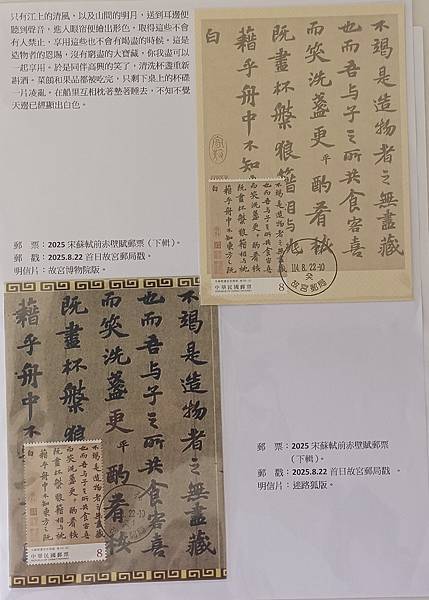 只有江上的清風，以及山間的明月，送到耳邊便
聽到聲音，進入眼帘便繪出形色，取得這些不會
有人禁止，享用這些也不會有竭盡的時候。這是
造物者的恩賜，沒有窮盡的大寶藏，你我盡可以
一起享用。於是同伴高興的笑了，清洗杯盞重新
斟酒。菜餚和果品都被吃完，只剩下桌上的杯碟
一片凌亂。在船里互相枕著墊著睡去，不知不覺
天邊已經顯出白色。
郵　票：2025 宋蘇軾前赤壁賦郵票（下輯）。
郵　戳：2025.8.22 首日故宮郵局戳。
明信片：故宮博物院版。
不竭是造物者之無盡藏
也而吾與子之所共食客喜
而笑洗盞更平酌肴核
既盡杯盤狼籍相與枕
藉乎舟中不知
白
中華民國郵票
8
114.8.22-10
故宮郵局
不竭是造物者之無盡藏
也而吾與子之所共食客喜
而笑洗盞更平酌肴核
既盡杯盤
藉乎舟中
中華民國郵票
8
郵　票：2025 宋蘇軾前赤壁賦郵票
（下輯）。
郵　戳：2025.8.22 首日故宮郵局戳 。
明信片：迷路狐版。